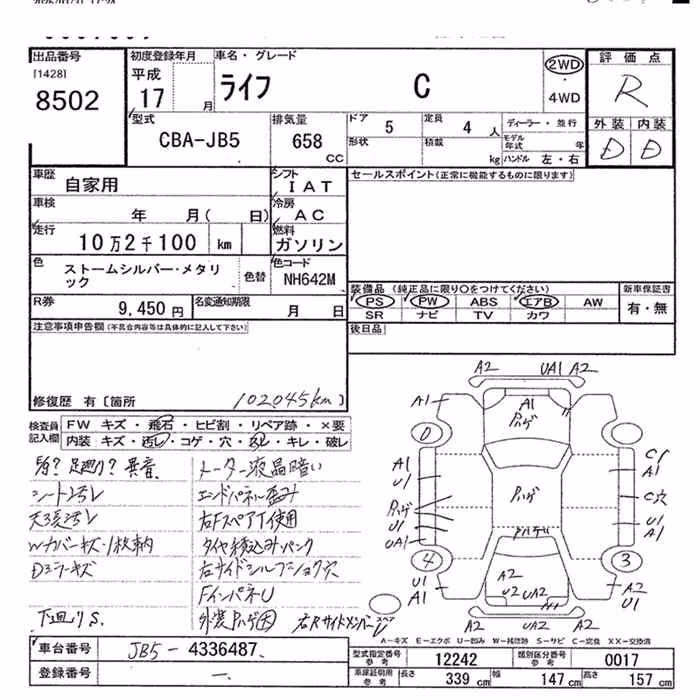 出品番号
[1428]
8502
初度登録年月
平成
17 月
車名・グレード
ライフ C
2WD
・
4WD
評価点
R
外装 内装
D D
型式
CBA-JB5
排気量
658
CC
ドア
5
定員
4 人
形状
積載
kg
ディーラー・並行
モデル年式 年
ハンドル 左・右
車歴
自家用
シフト
IAT
車検
年 月( 日)
冷房
AC
走行
10万2千100 km
燃料
ガソリン
色
ストームシルバー・メタリック
色替
色コード
NH642M
R券
9,450円
名変通知期限
月 日
セールスポイント(正常に機能するものに限ります)
装備品 (純正品に限り○をつけてください)
PS PW ABS エアB AW
SR ナビ TV カワ
新車保証書
有・無
後日品
注意事項申告欄(不具合内容等は具体的に記入して下さい)
修復歴 有〔箇所 102045km〕
検査員記入欄
FW キズ・飛石・ヒビ割・リペア跡・×要
内装 キズ・汚レ・コゲ・穴・ネジ・キレ・破レ
足廻り?異音
シート汚レ
天張汚レ
Wカバーキズ・1枚車内
Dミラーキズ
下廻りS.
メーター液晶暗い
エンドパネル歪み
右FスペアT使用
タイヤ積込みパンク
FインパネU
外装ハゲ大
右RサイドメンバーU
A2 UA1 A2
A1 A1
ハゲ
0
A1
U1
ハゲ
U1
UA1
4
U1
A1
ハゲ
ハゲ
C穴
A1
U1
A1
3
A2
U1
A2
U2 UA2
A2 UA2 A2
スペア
A-キズ E-エクボ U-凹み W-補修跡 S-サビ C-腐食 XX-交換済
車台番号
JB5-4336487
登録番号
—
型式指定番号
参考
12242
類別区分番号
参考
0017
車庫証明用
参考
長さ
339 cm
幅
147 cm
高さ
157 cm